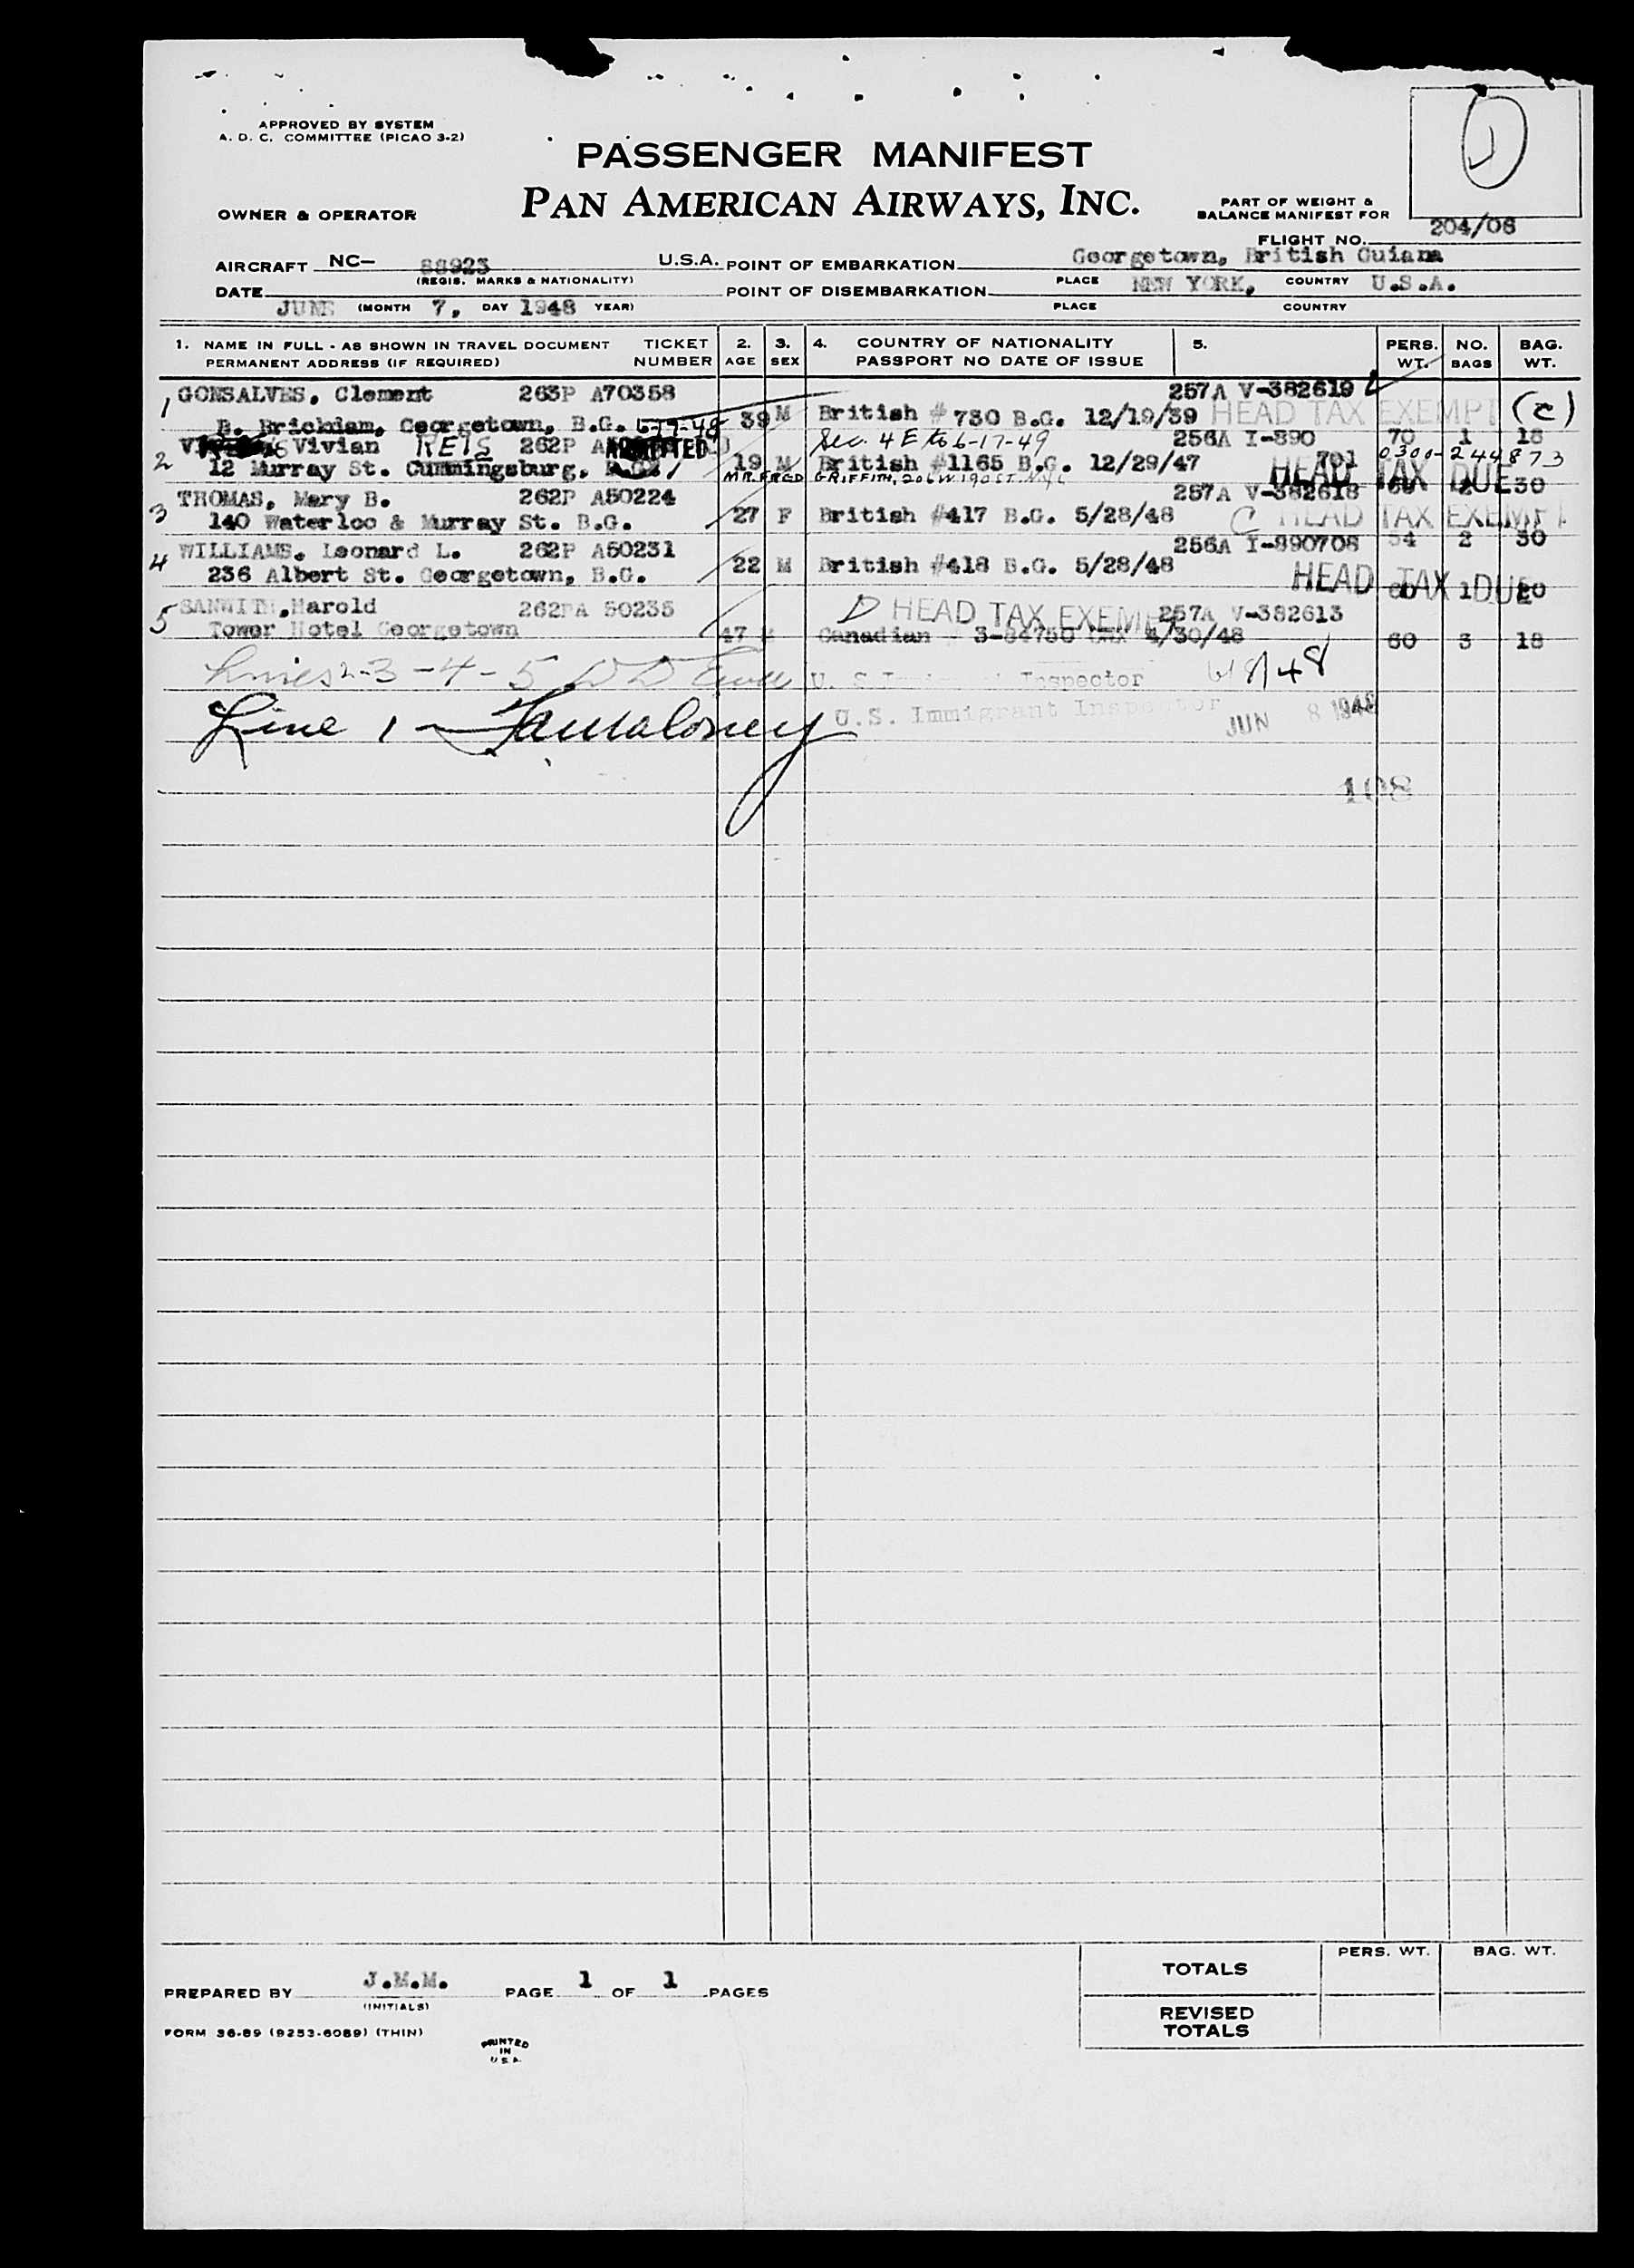 APPROVED BY SYSTEM
A. D. C. COMMITTEE (PICAO 3-2)
PASSENGER MANIFEST
PAN AMERICAN AIRWAYS, INC.
OWNER & OPERATOR
PART OF WEIGHT &
BALANCE MANIFEST FOR
FLIGHT NO. 204/06
AIRCRAFT NC- 88923 U.S.A. POINT OF EMBARKATION Georgetown, British Guiana
(REGIS. MARKS & NATIONALITY) PLACE COUNTRY
DATE JUNE (MONTH 7, DAY 1948 YEAR) POINT OF DISEMBARKATION NEW YORK, U.S.A.
PLACE COUNTRY
1. NAME IN FULL - AS SHOWN IN TRAVEL DOCUMENT TICKET 2. 3. 4. COUNTRY OF NATIONALITY 5. PERS. NO. BAG.
PERMANENT ADDRESS (IF REQUIRED) NUMBER AGE SEX PASSPORT NO DATE OF ISSUE WT. BAGS WT.
1 GONSALVES, Clement 263P A70358 257A V-382619
B. Brickdam, Georgetown, B.G. 39 M British # 730 B.G. 12/19/39 HEAD TAX EXEMPT (c)
Vivian REIS 262P ADMITTED Sec. 4 E to 6-17-49 256A I-890 70 1 18
2 12 Murray St. Cummingsburg, 19 M British #1165 B.G. 12/29/47 701 0300-244873
MR. FRED GRIFFITH, 206 W 190 ST. N.Y.C HEAD TAX DUE
3 THOMAS, Mary B. 262P A50224 257A V-382618 2 30
140 Waterloo & Murray St. B.G. 27 F British #417 B.G. 5/28/48 C HEAD TAX EXEMPT
4 WILLIAMS. Leonard L. 262P A50231 256A I-890708 54 2 30
236 Albert St. Georgetown, B.G. 22 M British #418 B.G. 5/28/48 HEAD TAX DUE
60 1 20
5 SANWITH, Harold 262PA 50235 D HEAD TAX EXEMPT 257A V-382613
Tower Hotel Georgetown 47 M Canadian 3-84750 4/30/48 60 3 18
Lines 2-3-4-5 U. S. Inspector 6/8/48
Line 1 U.S. Immigrant Inspector JUN 8 1948
108
PERS. WT. BAG. WT.
TOTALS
PREPARED BY J.M.M. PAGE 1 OF 1 PAGES
(INITIALS)
REVISED
TOTALS
FORM 36-89 (9253-6089) (THIN)
PRINTED
IN
U.S.A.